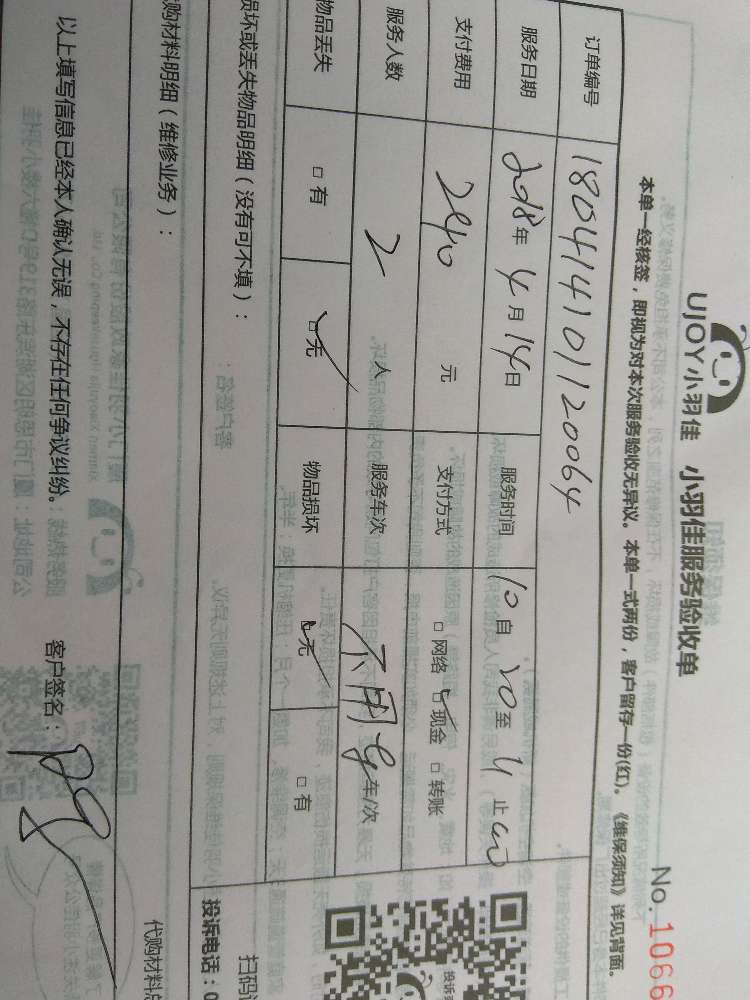 UJOY小羽佳 小羽佳服务验收单
No. 1066
本单一经核签，即视为对本次服务验收无异议。本单一式两份，客户留存一份(红)。《维保须知》详见背面。
订单编号 180414101120064
服务日期 2018年4月14日 服务时间
支付费用 240 元 支付方式 □ 网络 □ 现金 □ 转账
服务人数 2 人 服务车次 不用 车/次
物品丢失 □ 有 □ 无 物品损坏 □ 无 □ 有
损坏或丢失物品明细（没有可不填）：
投诉电话：0
购材料明细（维修业务）：
代购材料总
以上填写信息已经本人确认无误，不存在任何争议纠纷。 客户签名：